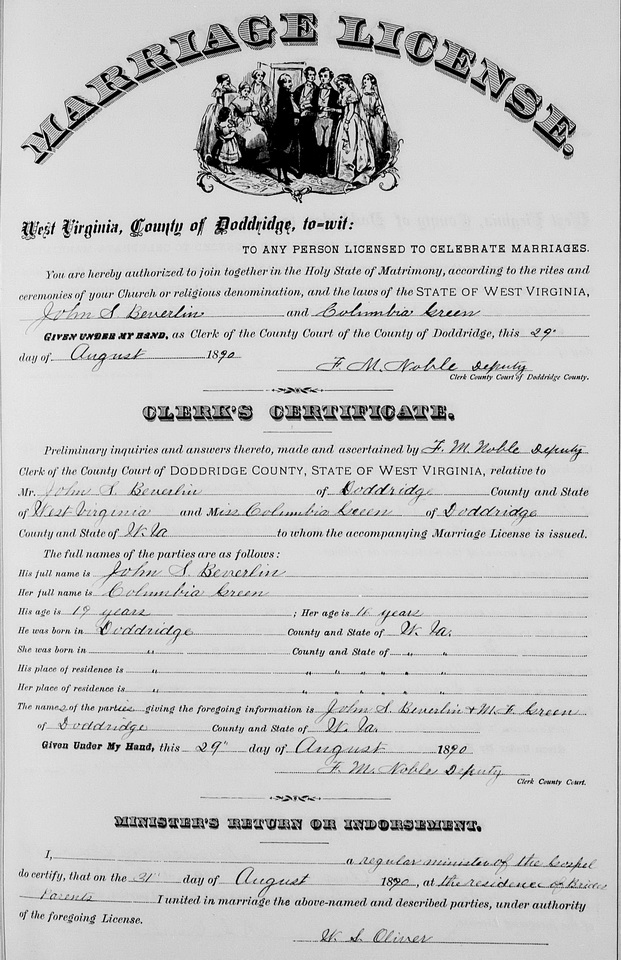 MARRIAGE LICENSE.
West Virginia, County of Doddridge, to-wit:
TO ANY PERSON LICENSED TO CELEBRATE MARRIAGES.
You are hereby authorized to join together in the Holy State of Matrimony, according to the rites and
ceremonies of your Church or religious denomination, and the laws of the STATE OF WEST VIRGINIA,
John S. Beverlin and Columbia Green
GIVEN UNDER MY HAND, as Clerk of the County Court of the County of Doddridge, this 29"
day of August 1890
F. M. Noble Deputy
Clerk County Court of Doddridge County.
CLERK'S CERTIFICATE.
Preliminary inquiries and answers thereto, made and ascertained by F. M. Noble Deputy
Clerk of the County Court of DODDRIDGE COUNTY, STATE OF WEST VIRGINIA, relative to
Mr. John S. Beverlin of Doddridge County and State
of West Virginia and Miss Columbia Green of Doddridge
County and State of W. Va to whom the accompanying Marriage License is issued.
The full names of the parties are as follows:
His full name is John S. Beverlin
Her full name is Columbia Green
His age is 19 years ; Her age is years
He was born in Doddridge County and State of W. Va.
She was born in " County and State of " "
His place of residence is " " " " " "
Her place of residence is " " " " " "
The names of the parties giving the foregoing information is John S. Beverlin & M. F. Green
of Doddridge County and State of W. Va.
Given Under My Hand, this 29" day of August 1890
F. M. Noble Deputy
Clerk County Court.
MINISTER'S RETURN OR INDORSEMENT.
I, a regular minister of the Gospel
do certify, that on the 31" day of August 1890, at the residence of Brides
Parents I united in marriage the above-named and described parties, under authority
of the foregoing License.
W. S. Oliver